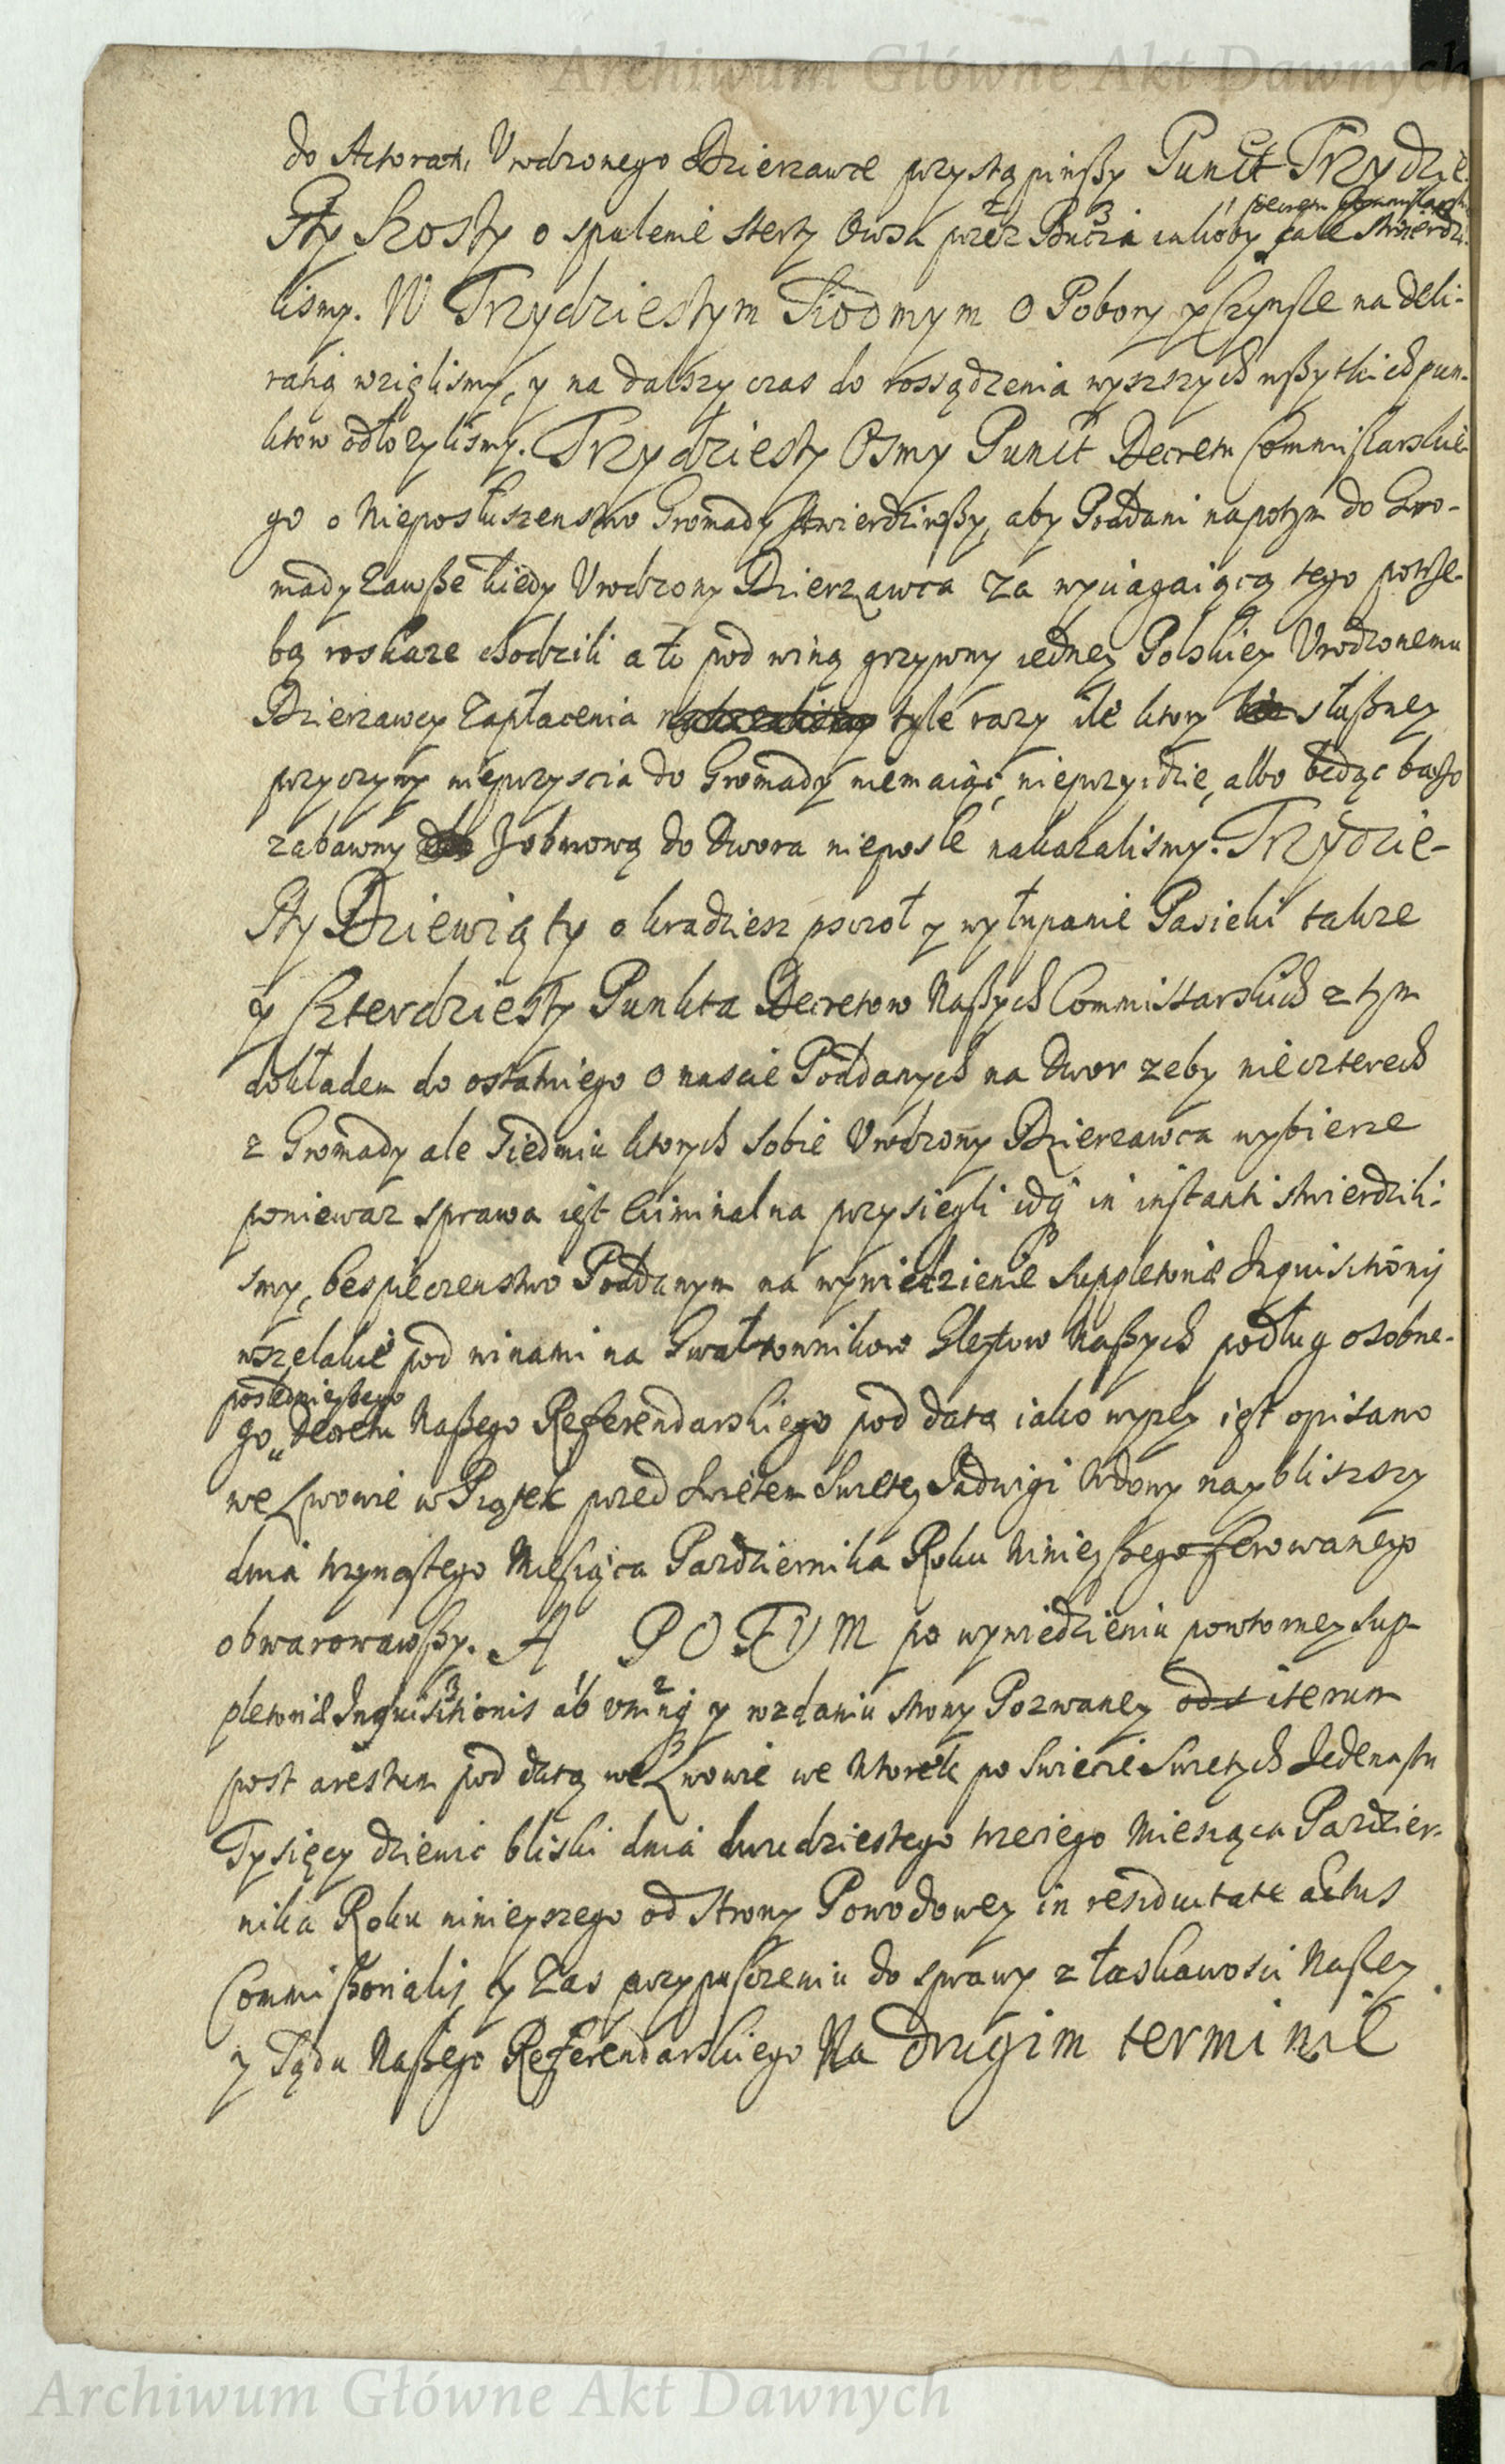 Archiwum Główne Akt Dawnych
do Actorath Vrodzonego Dzierzawce przystąpiwszy Punct Trzydzie-
sty Szosty o spalenie sterty Owsa przez Bucza iakoby Decretu Commissarski całe stwierdzi-
lismy. W Trzydziestym Siodmym O Pobory y Czynsze na deli-
ratią wzięlismy, y na dalszy czas do rossądzenia wyszszych wszytkich pun-
ktow odłozylismy. Trzydziesty Osmy Punct Decretu Commissarskie-
go o Nieposłuszenstwo Gromady stwierdziwszy, aby Poddani napotym do Gro-
mady zawsze kiedy Vrodzony Dzierzawca za wyciagaiącą tego potrze-
bą roskaze chodzili a to pod winą grzywny iedney Polskiey Vrodzonemu
Dzierzawcy zapłacenia nakazalismy tyle razy ile ktory słuszney
przyczyny nieprzyscia do Gromady niemaiąc, nieprzydzie, albo bedąc barzo
zabawny z obmową do Dwora niepośle nakazalismy. Trzydzie-
sty Dziewiąty o kradziesz pszczoł y wyłupanie Pasieki takze
y Czterdziesty Punkta Decretow Naszych Commissarskich z tym
dokładem do ostatniego o nascie Poddanych na Dwor zeby nie czterech
z Gromady ale Siedmiu ktorych sobie Vrodzony Dzierzawca wybierze
poniewaz sprawa iest Criminalna przysiegli idą in instanti stwierdzili-
smy, bespieczenstwo Poddanym na wywiedzienie Suppletoriæ Inquisitionis
wszelakie pod winami na Gwałtownikow Gleytow Naszych podług osobne-
posledniejszego
go Decretu Naszego Referendarskiego pod datą iako wyzey iest opisano
we Lwowie w Piątek przed Swietem Swietey Jadwigi Wdowy naybliszszy
dnia trzynastego Miesiąca Pazdziernika Roku Ninieyszego ferowanego
obwarowawszy. A POTVM po wywiedzieniu powtorney Sup-
pletoriæ Inquisitionis ab utrinq y wzdaniu strony Pozwaney iterum
post arestum pod datą we Lwowie we Wtorek po Swiecie Swietych Jedenastu
Tysięcy dziewic bliski dnia dwudziestego trzeciego Miesiąca Pazdzier-
nika Roku ninieyszego od Strony Powodowey in residuitate actus
Commissorialis y Zas przypuszczeniu do sprawy z łaskawosci Naszey
y Sądu Naszego Referendarskiego Na drugim terminie
Archiwum Główne Akt Dawnych